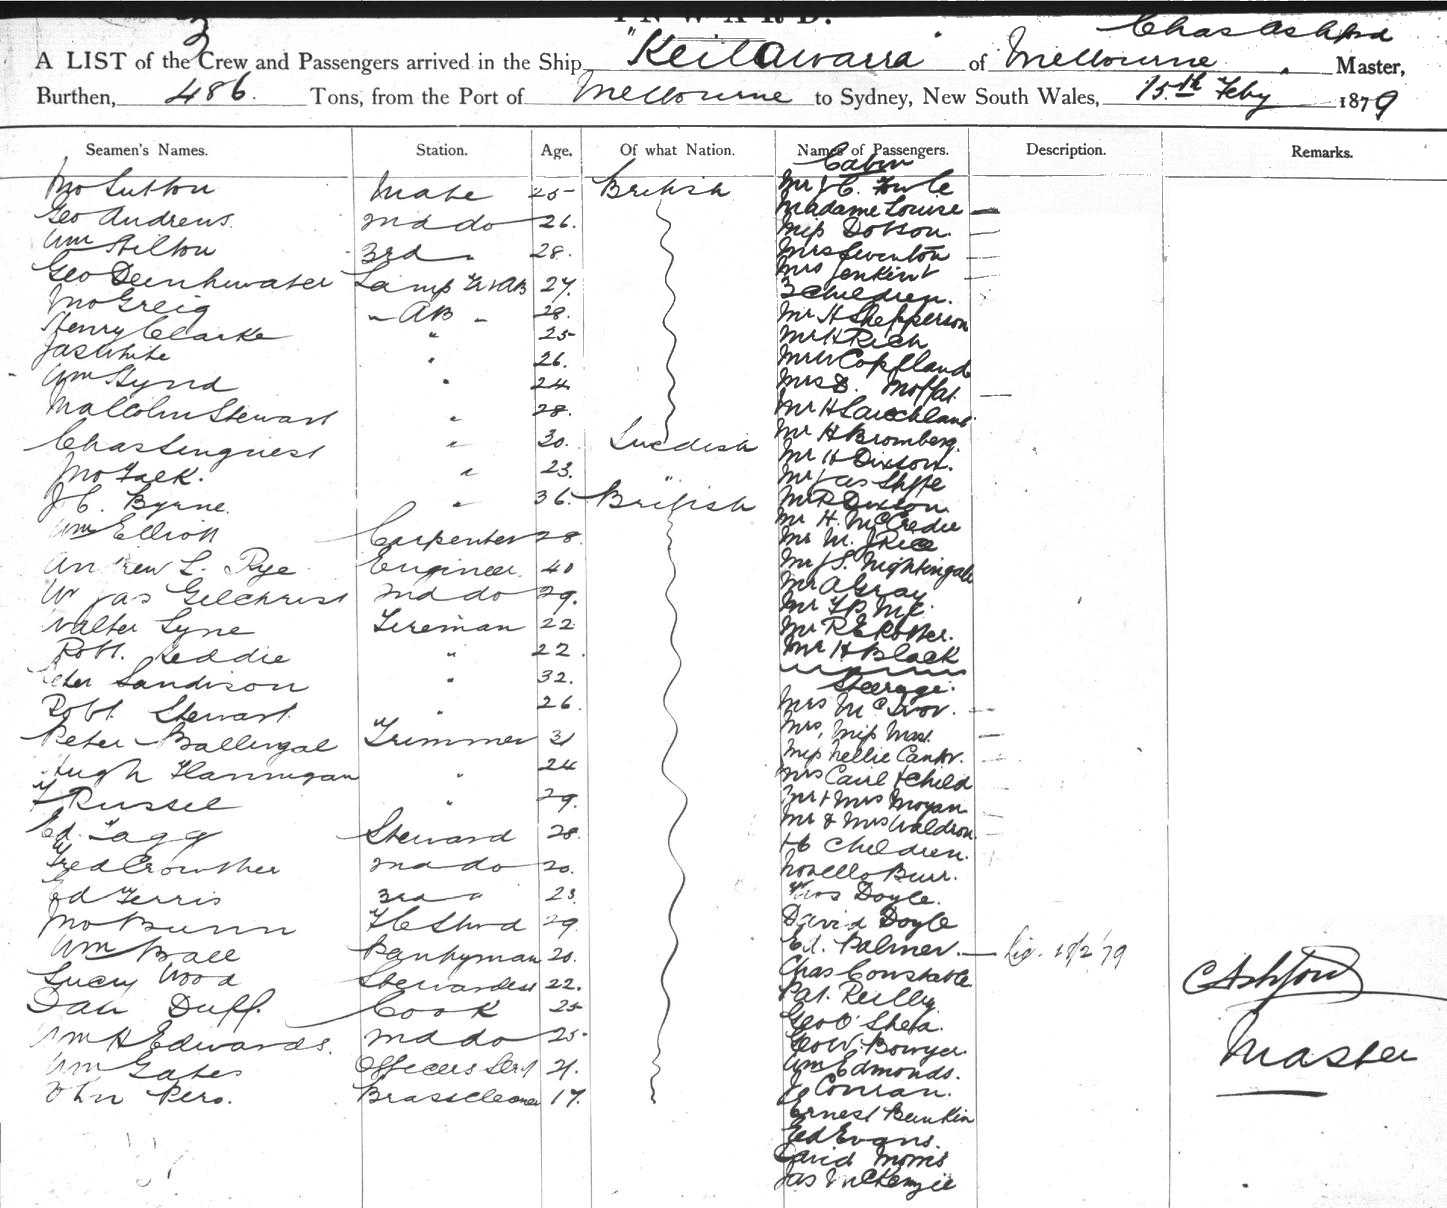 INWARD.
3
Chas Ashford
A LIST of the Crew and Passengers arrived in the Ship "Keilawarra" of Melbourne Master,
Burthen, 486 Tons, from the Port of Melbourne to Sydney, New South Wales, 15th Feby 1879
Seamen's Names. Station. Age. Of what Nation. Names of Passengers. Description. Remarks.
Jno Sutton Mate 25 British
Geo Andrews 2nd do 26.
Wm Hilton 3rd " 28.
Geo Drinkwater Lamp Tr & AB 27.
Jno Greig " AB " 28.
Henry Clarke " 25
Jas White " 26.
Wm 24
Malcolm Stewart " 28.
Chas Linguest " 30. Swedish
Jno Falk. " 23. "
J C. Byrne. " 36. British
Wm Elliott Carpenter 28
Andrew L. Rye Engineer 40
Jas Gilchrist 2nd do 29.
Walter Lyne Fireman 22
Robt. Keddie " 22.
Peter Sandison " 32.
Robt Stewart. " 26.
Peter Ballingal Trimmer 31
Hugh Flannigan " 24
Russel " 29.
Ed. Tagg Steward 28
Fred Crowther 2nd do 20.
Ed Ferris 3rd " 23.
Jno Bunn F C Stwd 29
Wm Ball Pantryman 20.
Lucy Wood Stewardess 22.
Dan Duff. Cook 25
Wm H Edwards. 2nd do 25.
Wm Gates Officers Servt 21.
John Pero. Brasscleaner 17.
Cabin
Mr J C. Fowle
Madame Louise
Miss Dobson.
Mrs Swenton
Mrs Jenkins &
3 Children.
Mr H Shepperson
Mr H Rich
Mr W Copeland
Mrs D. Moffat.
Mr H Lauchland.
Mr H Bromberg.
Mr H Dixson.
Mr Jas
Mr R Dixson
Mr H. McCredie
Mr M. J Rice
Mr J S. Nightingale
Mr A Gray
Mr
Mr R E Potter.
Mr H Black
Steerage.
Mrs McIvor.
Mrs, Miss
Miss Nellie
Mrs & Child
Mr & Mrs Moyan
Mr & Mrs Waldron
+6 Children.
Novello Burr.
Doyle.
David Doyle
Ed. Palmer.
Chas Constable
Pat. Reilly
Geo O'Shea.
Geo W. Bowyer.
Wm Edmonds.
J Conran.
Ernest Bunkin
Fed Evans.
David Morris
Jas McKenzie
C Ashford
Master